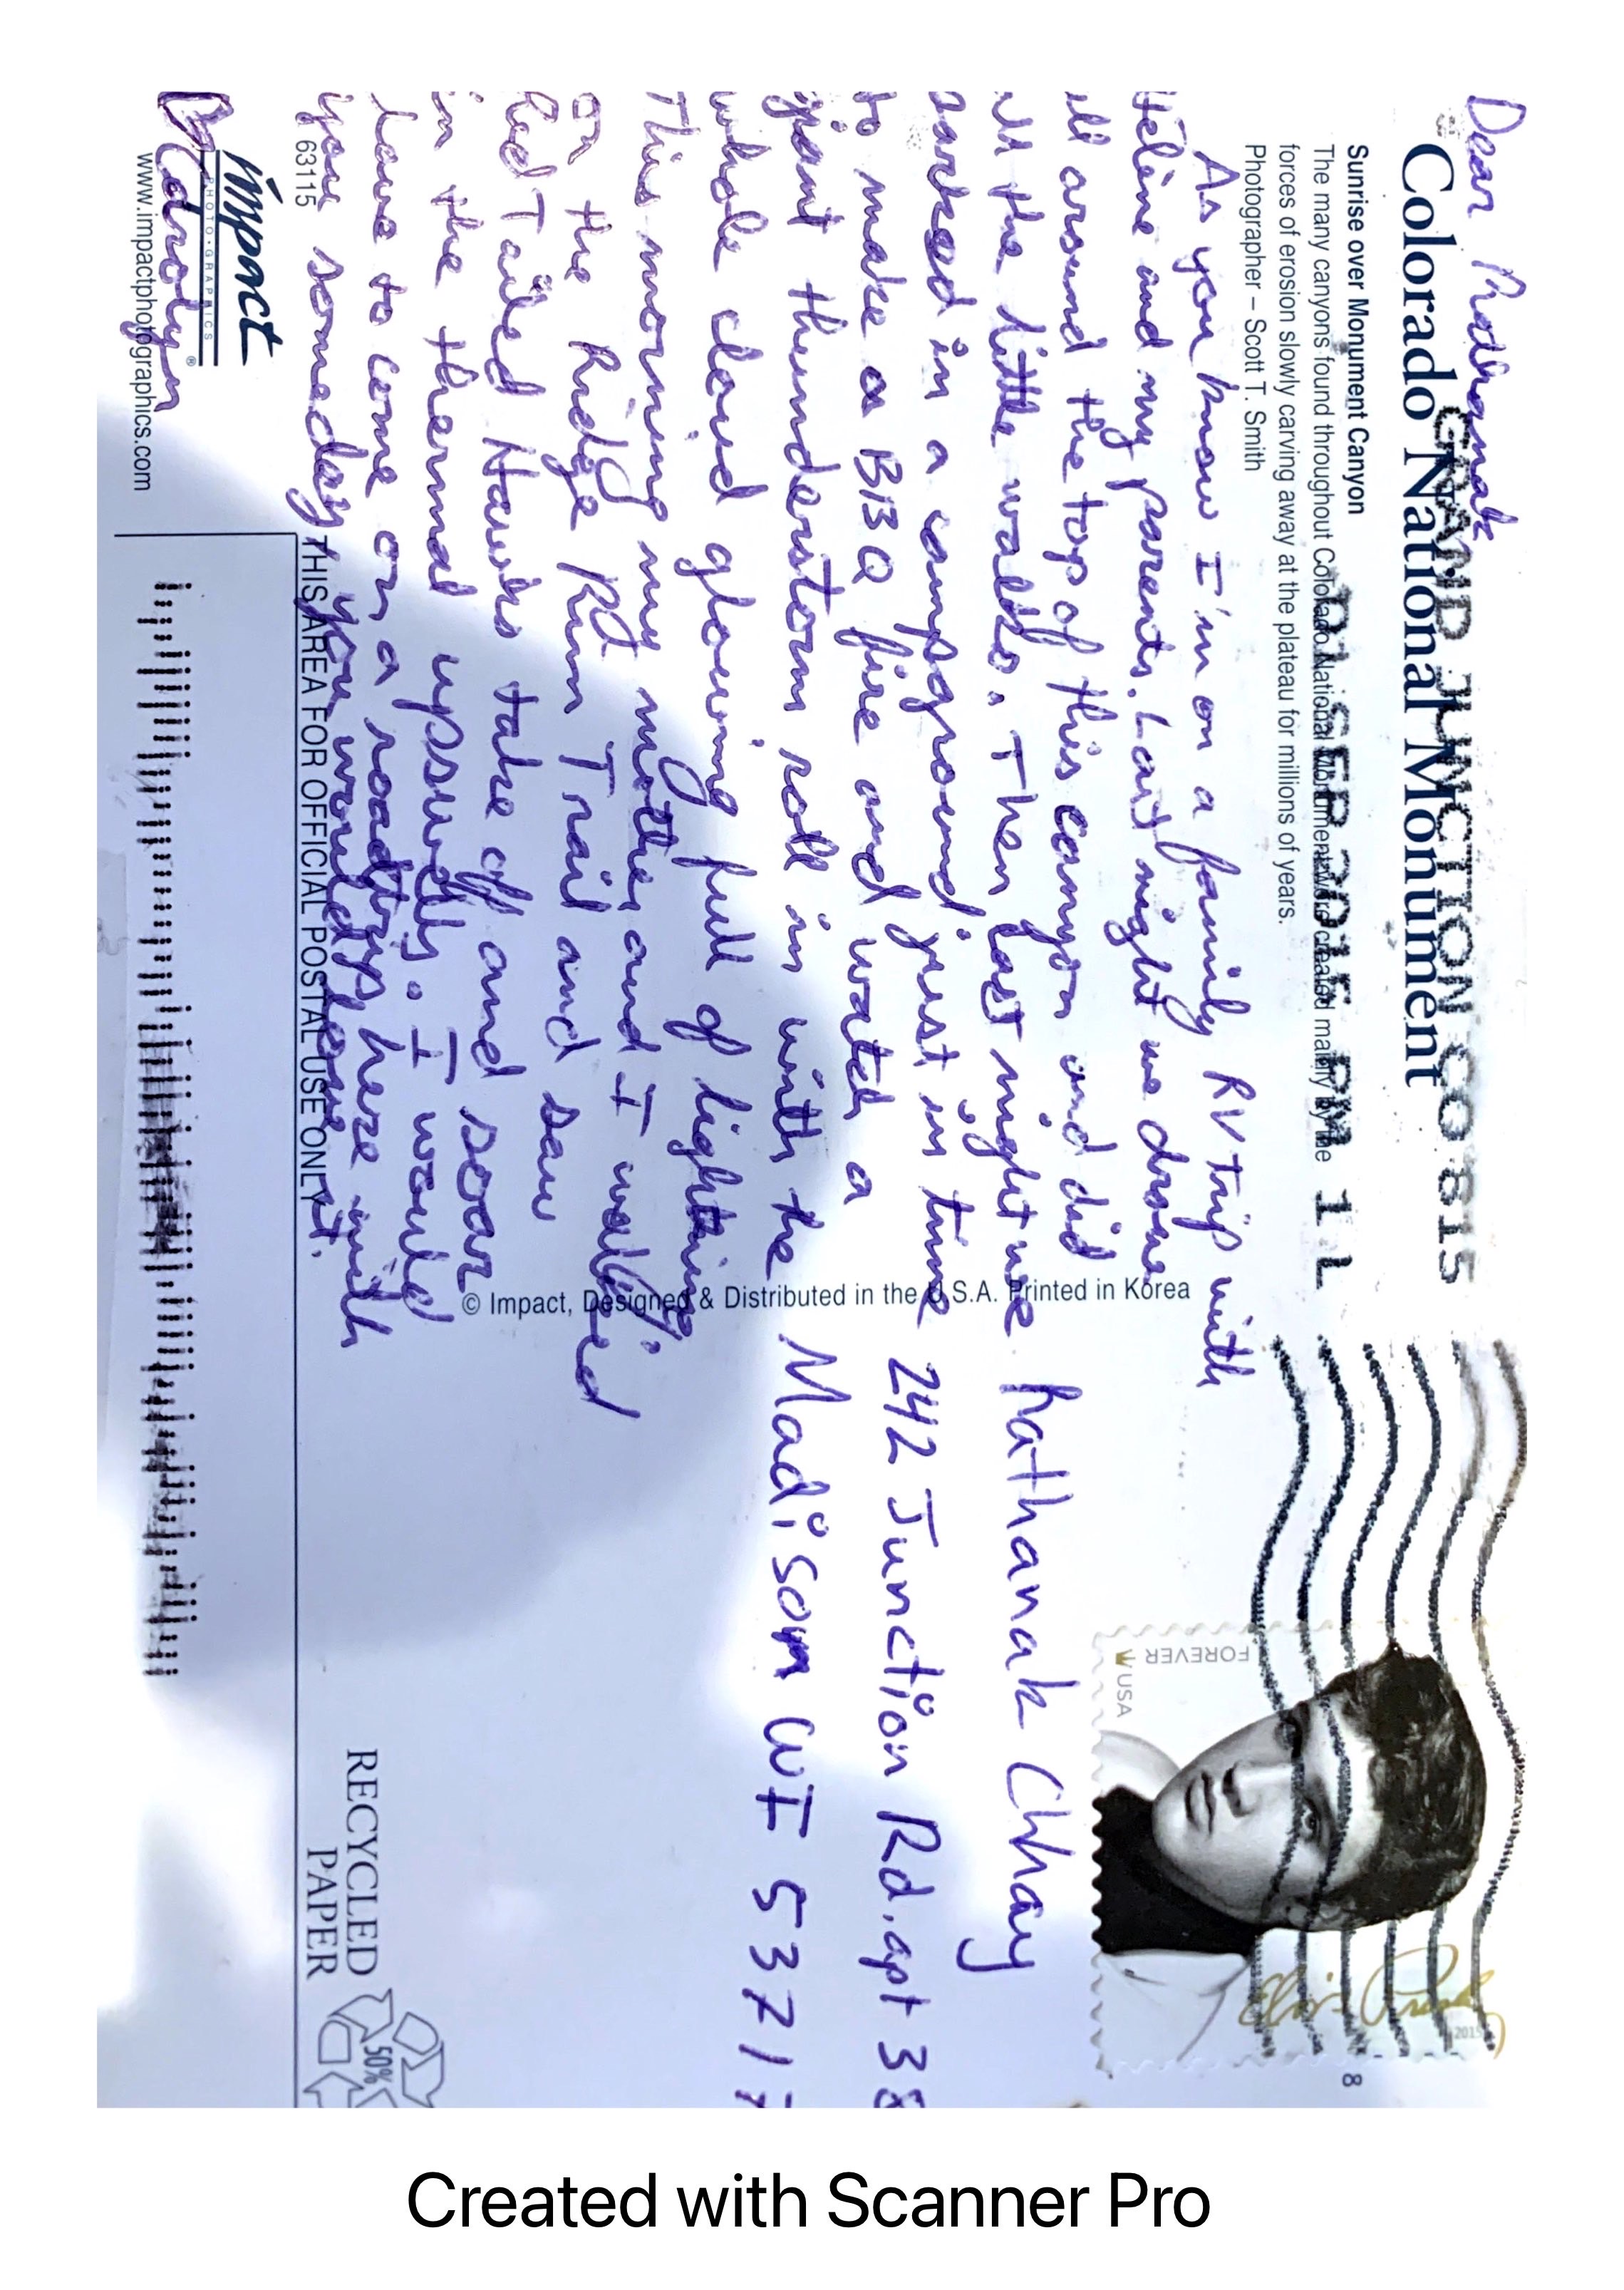 Dear Rathanak
Colorado National Monument
GRAND JUNCTION CO 815
01 SEP 2015 PM 1 L
Sunrise over Monument Canyon
The many canyons found throughout Colorado National Monument were created mainly by the
forces of erosion slowly carving away at the plateau for millions of years.
Photographer – Scott T. Smith
As you know I'm on a family RV trip with
and my parents. Last night we drove
all around the top of this canyon and did
all the little walks. Then last night we
parked in a campground just in time
to make a BBQ fire and watch a
giant thunderstorm roll in with the
whole cloud glowing full of lightning.
This morning my mother and I walked
on the Ridge Rim Trail and saw
Red Tailed Hawks take off and soar
in the thermal upswells. I would
love to come on a roadtrip here with
you someday, you would love it.
Carolyn
63115
impact
PHOTO•GRAPHICS®
www.impactphotographics.com
THIS AREA FOR OFFICIAL POSTAL USE ONLY
© Impact, Designed & Distributed in the U.S.A. Printed in Korea
FOREVER
USA
Elvis Presley
2015
8
Rathanak Chhay
242 Junction Rd. apt 38
Madison WI 5371
RECYCLED
PAPER
50%
Created with Scanner Pro